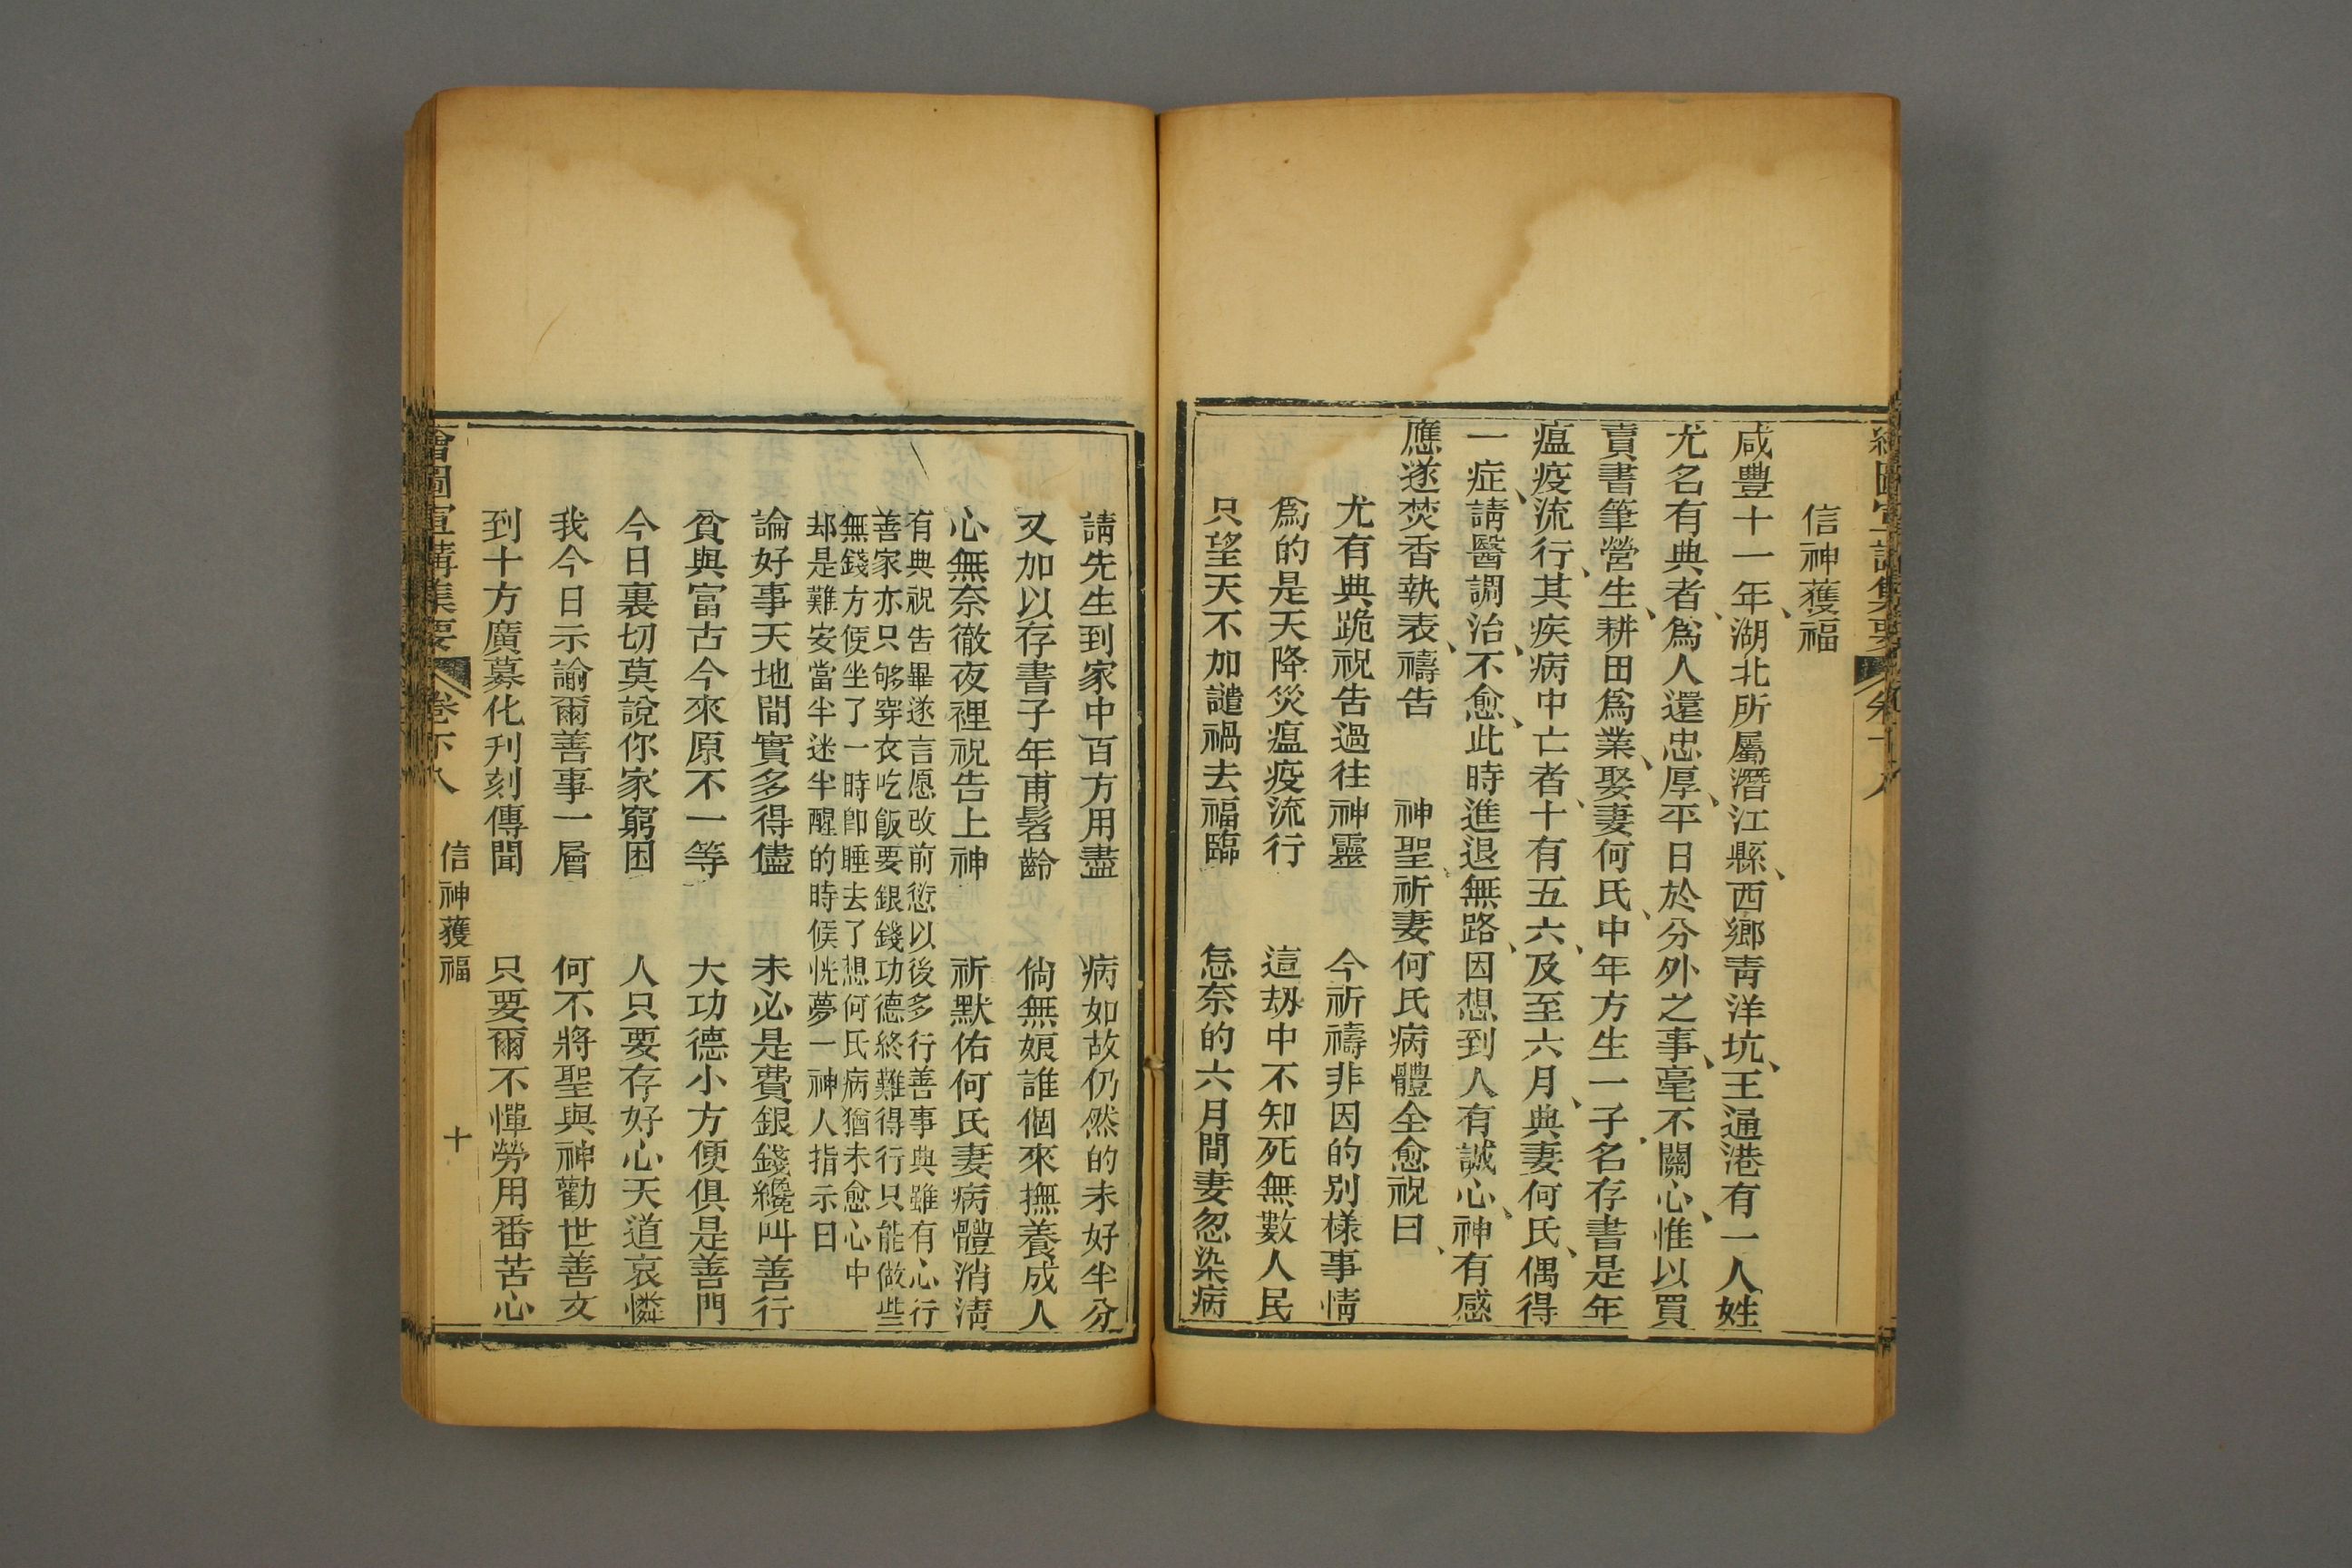 信神獲福
咸豐十一年、湖北所屬潛江縣、西鄉靑洋坑、王通港有一人姓
尤名有典者、爲人還忠厚、平日於分外之事、毫不關心、惟以買
賣書筆營生、耕田爲業、娶妻何氏、中年方生一子、名存書是年
瘟疫流行、其疾病中亡者、十有五六、及至六月、典妻何氏、偶得
一症、請醫調治、不愈、此時進退無路、因想到人有誠心、神有感
應遂焚香執表、禱告　神聖、祈妻何氏病體全愈祝曰、
尤有典跪祝告過往神靈　今祈禱非因的別樣事情
爲的是天降災瘟疫流行　這刼中不知死無數人民
只望天不加譴禍去福臨　怎奈的六月間妻忽染病
請先生到家中百方用盡　病如故仍然的未好半分
又加以存書子年甫髫齡　倘無娘誰個來撫養成人
心無奈徹夜裡祝告上神　祈默佑何氏妻病體消淸
有典祝告畢遂言愿改前愆以後多行善事典雖有心行
善家亦只够穿衣吃飯要銀錢功德終難得行只能做些
無錢方便坐了一時卽睡去了想何氏病猶未愈心中
却是難安當半迷半醒的時候恍夢一神人指示曰
論好事天地間實多得儘　未必是費銀錢纔叫善行
貧與富古今來原不一等　大功德小方便俱是善門
今日裏切莫說你家窮困　人只要存好心天道哀憐
我今日示諭爾善事一層　何不將聖與神勸世善文
到十方廣募化刋刻傳聞　只要爾不憚勞用番苦心
繪圖宣講集要　卷十八　信神獲福　十